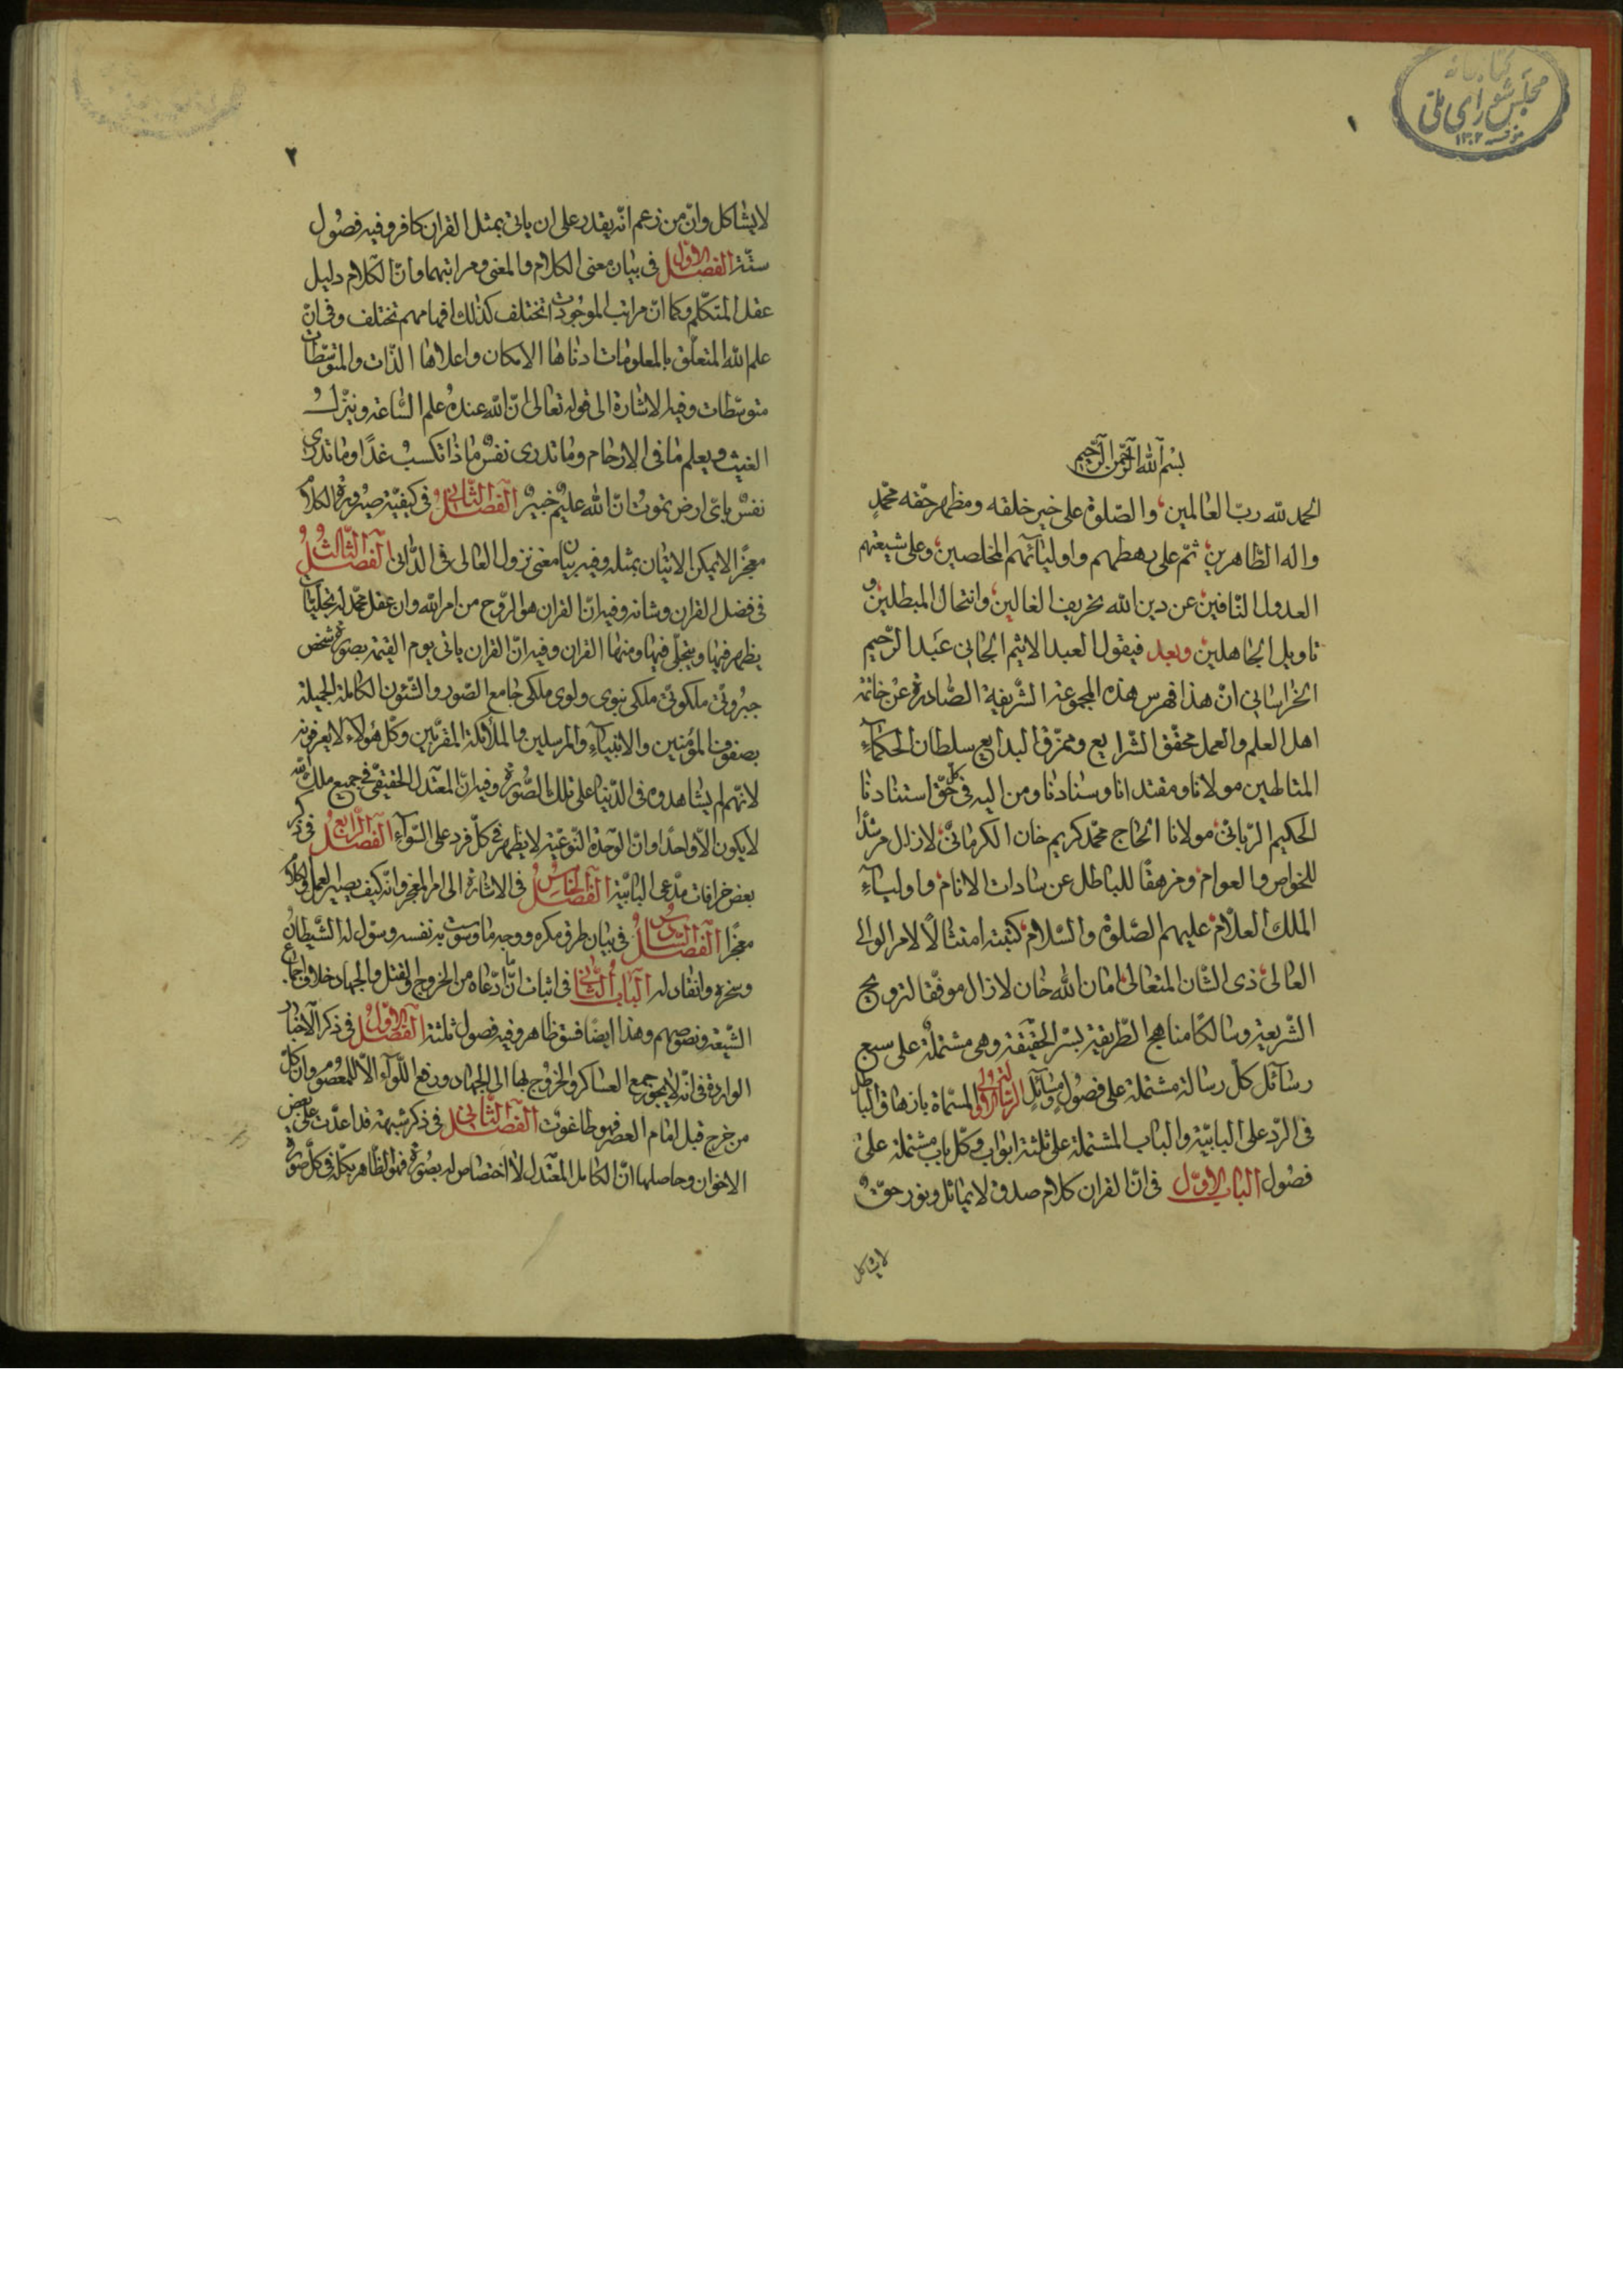 كتابخانه
مجلس شورای ملی
مؤسسه ۱۳۰۲
۱
بسم الله الرحمن الرحيم
الحمد لله ربّ العالمين، والصّلوة على خير خلقه ومظهر حقه محمّدٍ
واله الطّاهرين، ثمّ على رهطهم واوليآئهم المخلصين، وعلى شيعتهم
العدول النّافين، عن دين الله تحريف الغالين، وانتحال المبطلين، و
تاويل الجاهلين، وبعد فيقول العبد الاثيم الجاني عَبد الرّحيم
الخراساني انّ هذا فهرس هذه المجموعة الشّريفة الصّادرة عن خاتمة
اهل العلم والعمل محقّق الشّرايع وممزّق البدايع سلطان الحكمآء
المتاطين مولانا ومقتدانا وسنادنا ومن اليه في كلّ حقّ استنادنا
الحكيم الرّبّانيّ، مولانا الحاج محمّد كريم خان الكرمانيّ، لازال مرشدًا
للخواص والعوام، ومزهقًا للباطل عن سادات الانام، واوليآء
الملك العلّام، عليهم الصّلوة والسّلام، كتبته امتثالًا لامر الوالي
العالي، ذي الشّان المتعالي، امان الله خان لازال موفّقا لترويج
الشّريعة وسالكًا مناهج الطّريقة بسرّ الحقيقة وهي مشتملة على سبع
رسآئل كلّ رسالة مشتملة على فصُولٍ ومسآئل الرّسالة الاولى المسمّاة بازهاق الباطل
في الرّد على البابيّة والباب المشتملة على ثلثة ابواب وكلّ باب مشتملة على
فصُول الباب الاوّل في انّ القران كلام صدق لا يماثل ونور حقّ
لا يشاكل
۲
لا يشاكل وانّ من زعم انّه يقدر على ان ياتي بمثل القران كافر وفيه فصُول
ستّة الفصل الاوّل في بيان معنى الكلام والمعنى ومراتبهما وانّ الكلام دليل
عقل المتكلّم وكما انّ مراتب الموجودات تختلف كذلك افهامهم تختلف وفي انّ
علم الله المتعلّق بالمعلومات ادناها الامكان واعلاها الذّات والمتوسّطات
متوسّطات وفيه الاشارة الى قوله تعالى انّ الله عندهُ علم السّاعة وينزّل
الغيث ويعلم ما في الارحام وما تدري نفسٌ ماذا تكسب غدًا وما تدري
نفسٌ بايّ ارض تموت انّ الله عليمٌ خبيرٌ الفصل الثّاني في كيفيّة صيرورة الكلام
معجزًا لا يمكن الاتيان بمثله وفيه بيان معنى نزول العالي في الدّاني الفصل الثّالث
في فضل القران وشانه وفيه انّ القران هو الرّوح من امر الله وان عقل محمّد له تجليّات
يظهر فيها ويتجلّى فيها ومنها القران وفيه انّ القران ياتي يوم القيٰمة بصورة شخص
جبروتي ملكوتيّ ملكي نبوي ولوي ملكي جامع الصّور والشّئون الكاملة الجميلة
بصفوف المؤمنين والانبيآء والمرسلين والملآئكة المقرّبين وكلّ هؤلاء لا يعرفونه
لانّهم لم يشاهدوه في الدّنيا على تلك الصُّورة وفيه انّ المعتدل الحقيقيّ في جميع ملك الله
لا يكون الّا واحدًا وانّ الوحدة النّوعيّة لا يظهر في كلّ فرد على السّوآء الفصل الرّابع في ذكر
بعض خرافات مدّعي البابيّة الفصل الخامس في الاشارة الى امر المعجز وانّه كيف يصير العمل والكلام
معجزًا الفصل السّادس في بيان طرق مكره ووجه ما وسوست به نفسه وسوّل له الشّيطان
وسخّره وانقاد له الباب الثّاني في اثبات انّ ادّعاه من الخروج والقتل والجهاد خلاف اجماع
الشّيعة ونصوصهم وهذا ايضًا فسق ظاهر وفيه فصول ثلثة الفصل الاوّل في ذكر الاخبار
الواردة في انّه لا يجوز جمع العساكر والخروج بها الى الجهاد ورفع اللّوآء الّا للمعصُوم وان كلّ
من خرج قبل امام العصر فهو طاغوت الفصل الثّاني في ذكر شبهة قد اعدّت على بعض
الاخوان وحاصلها انّ الكامل المعتدل لا اختصاص له بصُورة فهو الظّاهر بكلّه في كلّ صورة